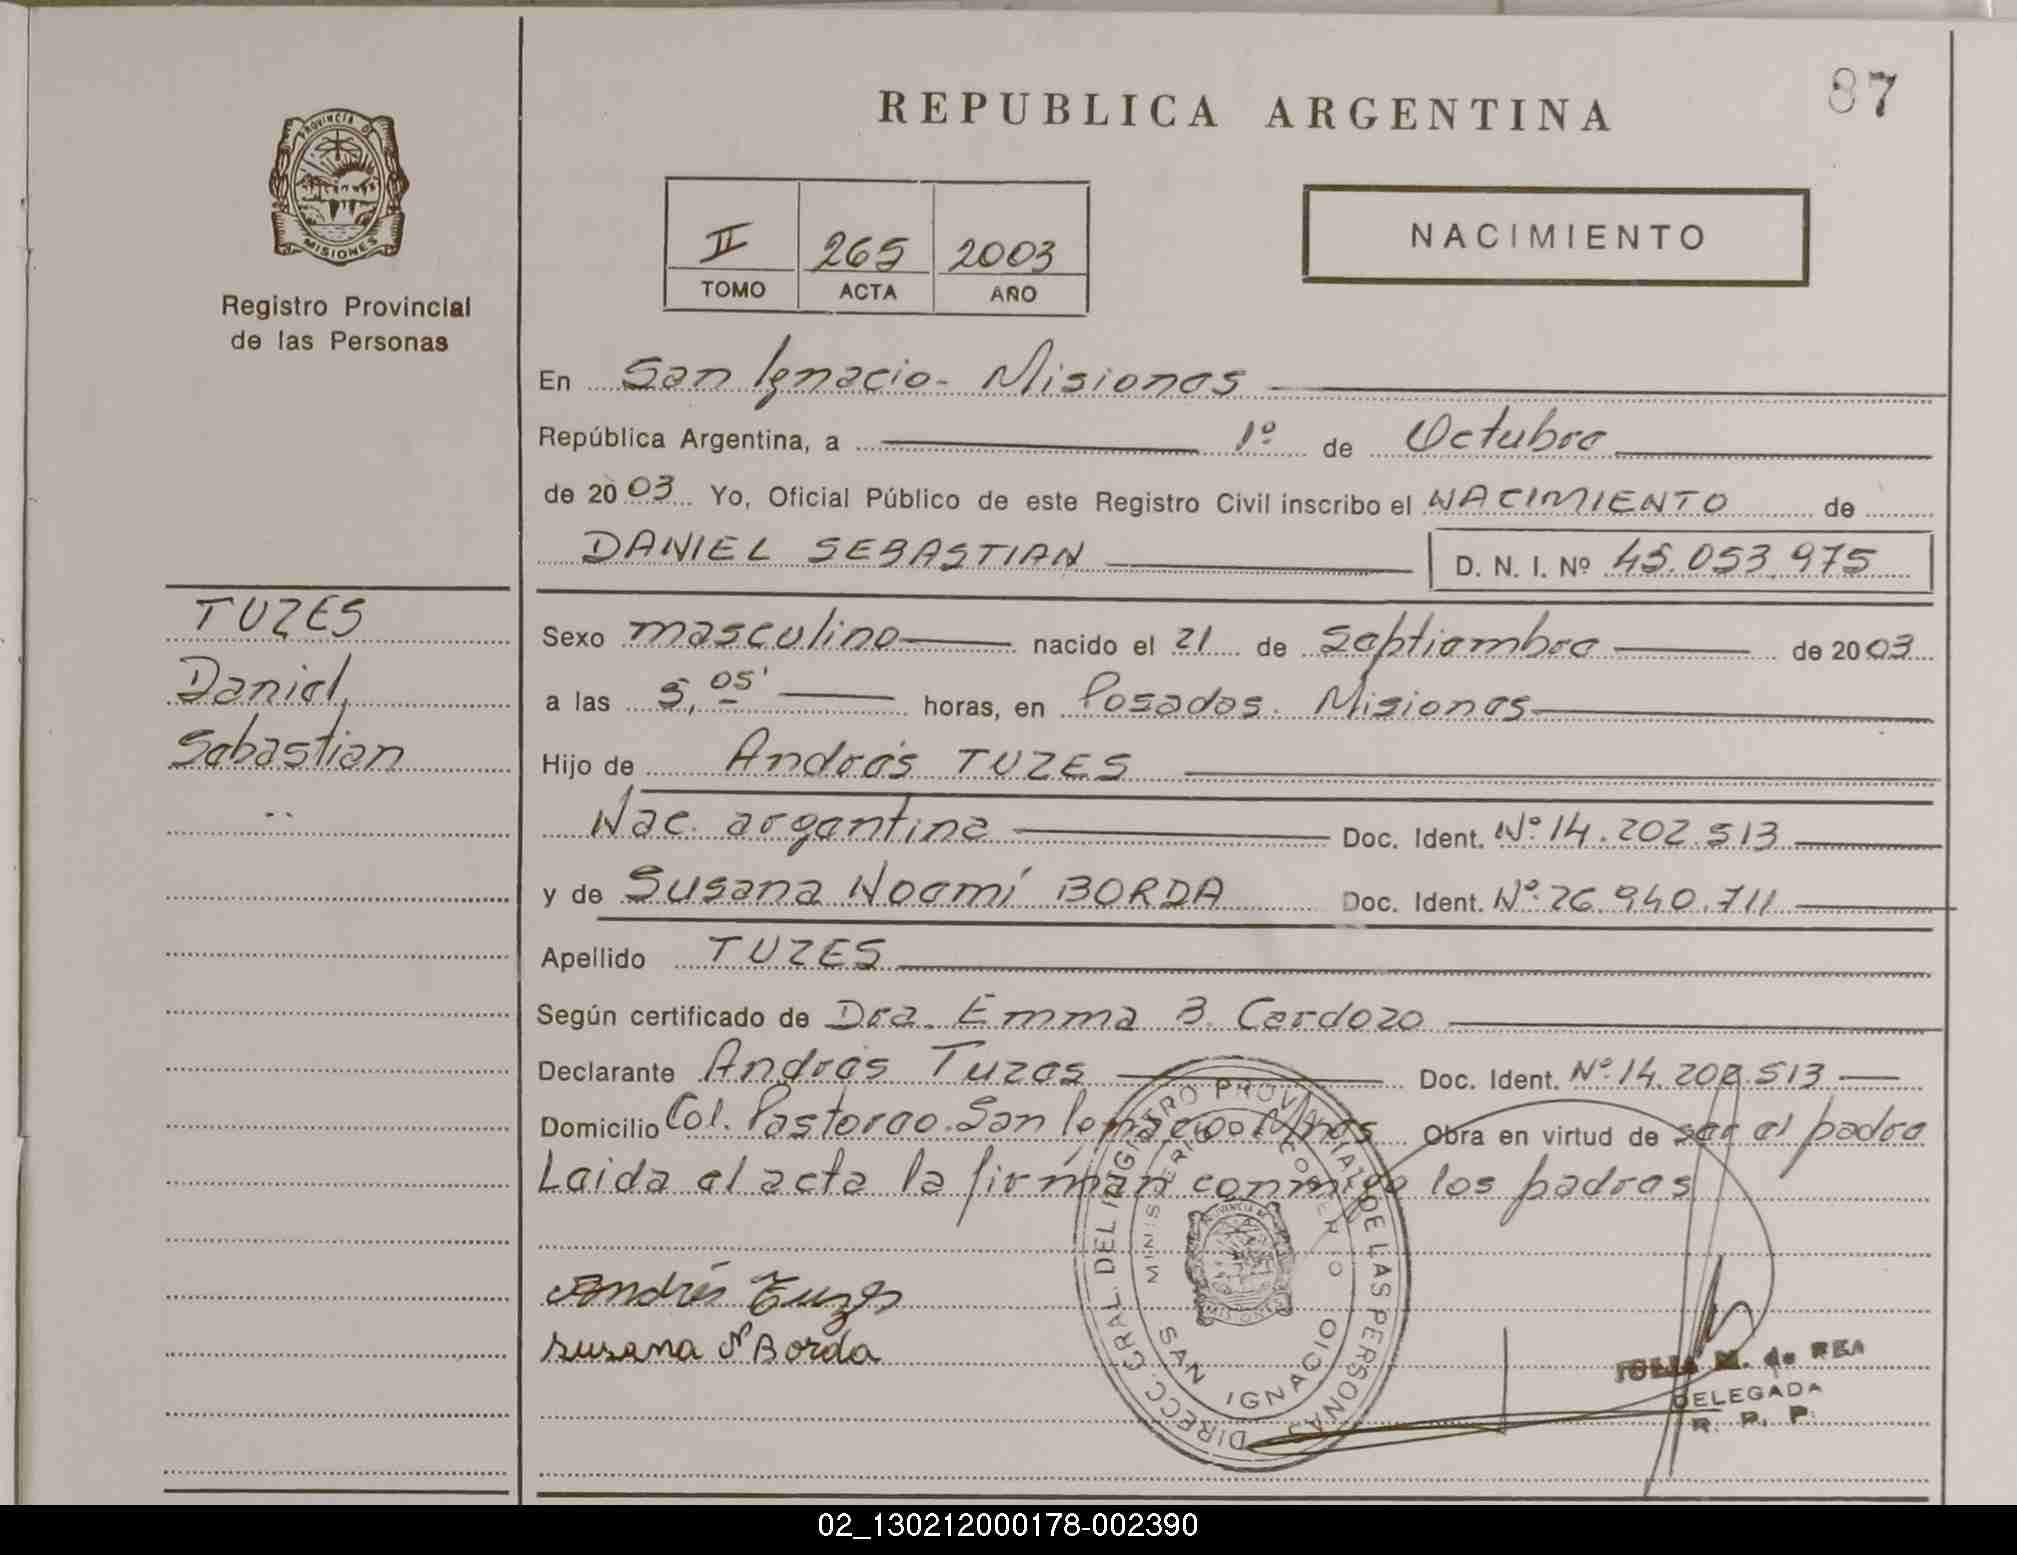 87
REPUBLICA ARGENTINA
PROVINCIA DE
MISIONES
Registro Provincial
de las Personas
II 265 2003
TOMO ACTA AÑO
NACIMIENTO
En San Ignacio - Misiones
República Argentina, a 1º de Octubre
de 2003 Yo, Oficial Público de este Registro Civil inscribo el NACIMIENTO de
DANIEL SEBASTIAN D. N. I. Nº 45.053.975
TUZES
Daniel,
Sebastian
Sexo masculino nacido el 21 de Septiembre de 2003
a las 5,05' horas, en Posadas. Misiones
Hijo de Andrés TUZES
Nac. argentina Doc. Ident. Nº 14.202.513
y de Susana Noemí BORDA Doc. Ident. Nº 26.940.711
Apellido TUZES
Según certificado de Dra. Emma B. Cardozo
Declarante Andrés Tuzes Doc. Ident. Nº 14.202.513
Domicilio Col. Pastoreo. San Ignacio Mnes Obra en virtud de ser el padre
Leida el acta la firman conmigo los padres
Andrés Tuzes
Susana N Borda
DIRECC. GRAL. DEL REGISTRO PROVINCIAL DE LAS PERSONAS
MINISTERIO DE GOBIERNO
PROVINCIA DE
MISIONES
SAN IGNACIO
JULIA M. de REA
DELEGADA
R. P. P.
02_130212000178-002390